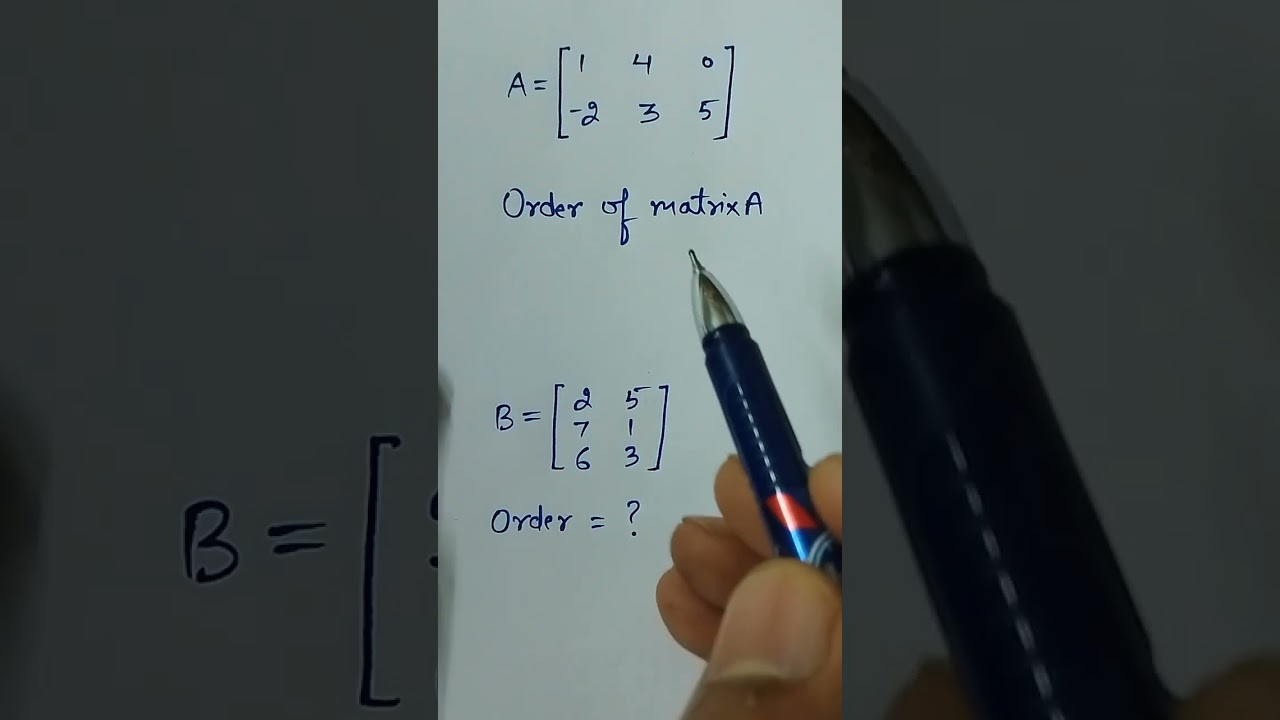 A = [ 1 4 0
-2 3 5 ]
Order of matrix A
B = [ 2 5
7 1
6 3 ]
Order = ?
B = [